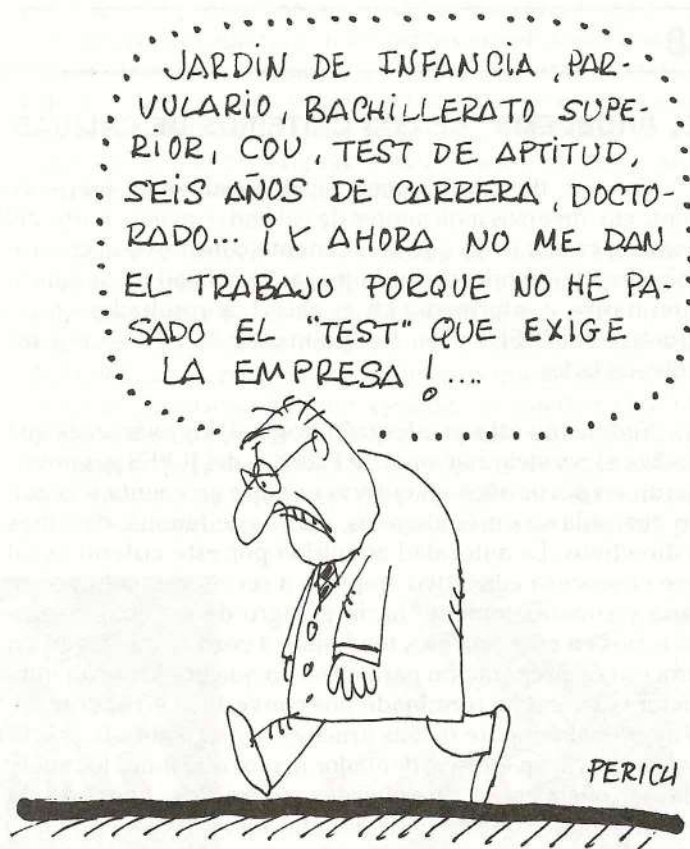 JARDIN DE INFANCIA, PAR-
VULARIO, BACHILLERATO SUPE-
RIOR, COU, TEST DE APTITUD,
SEIS AÑOS DE CARRERA, DOCTO-
RADO... ¡Y AHORA NO ME DAN
EL TRABAJO PORQUE NO HE PA-
SADO EL "TEST" QUE EXIGE
LA EMPRESA!....
PERICH